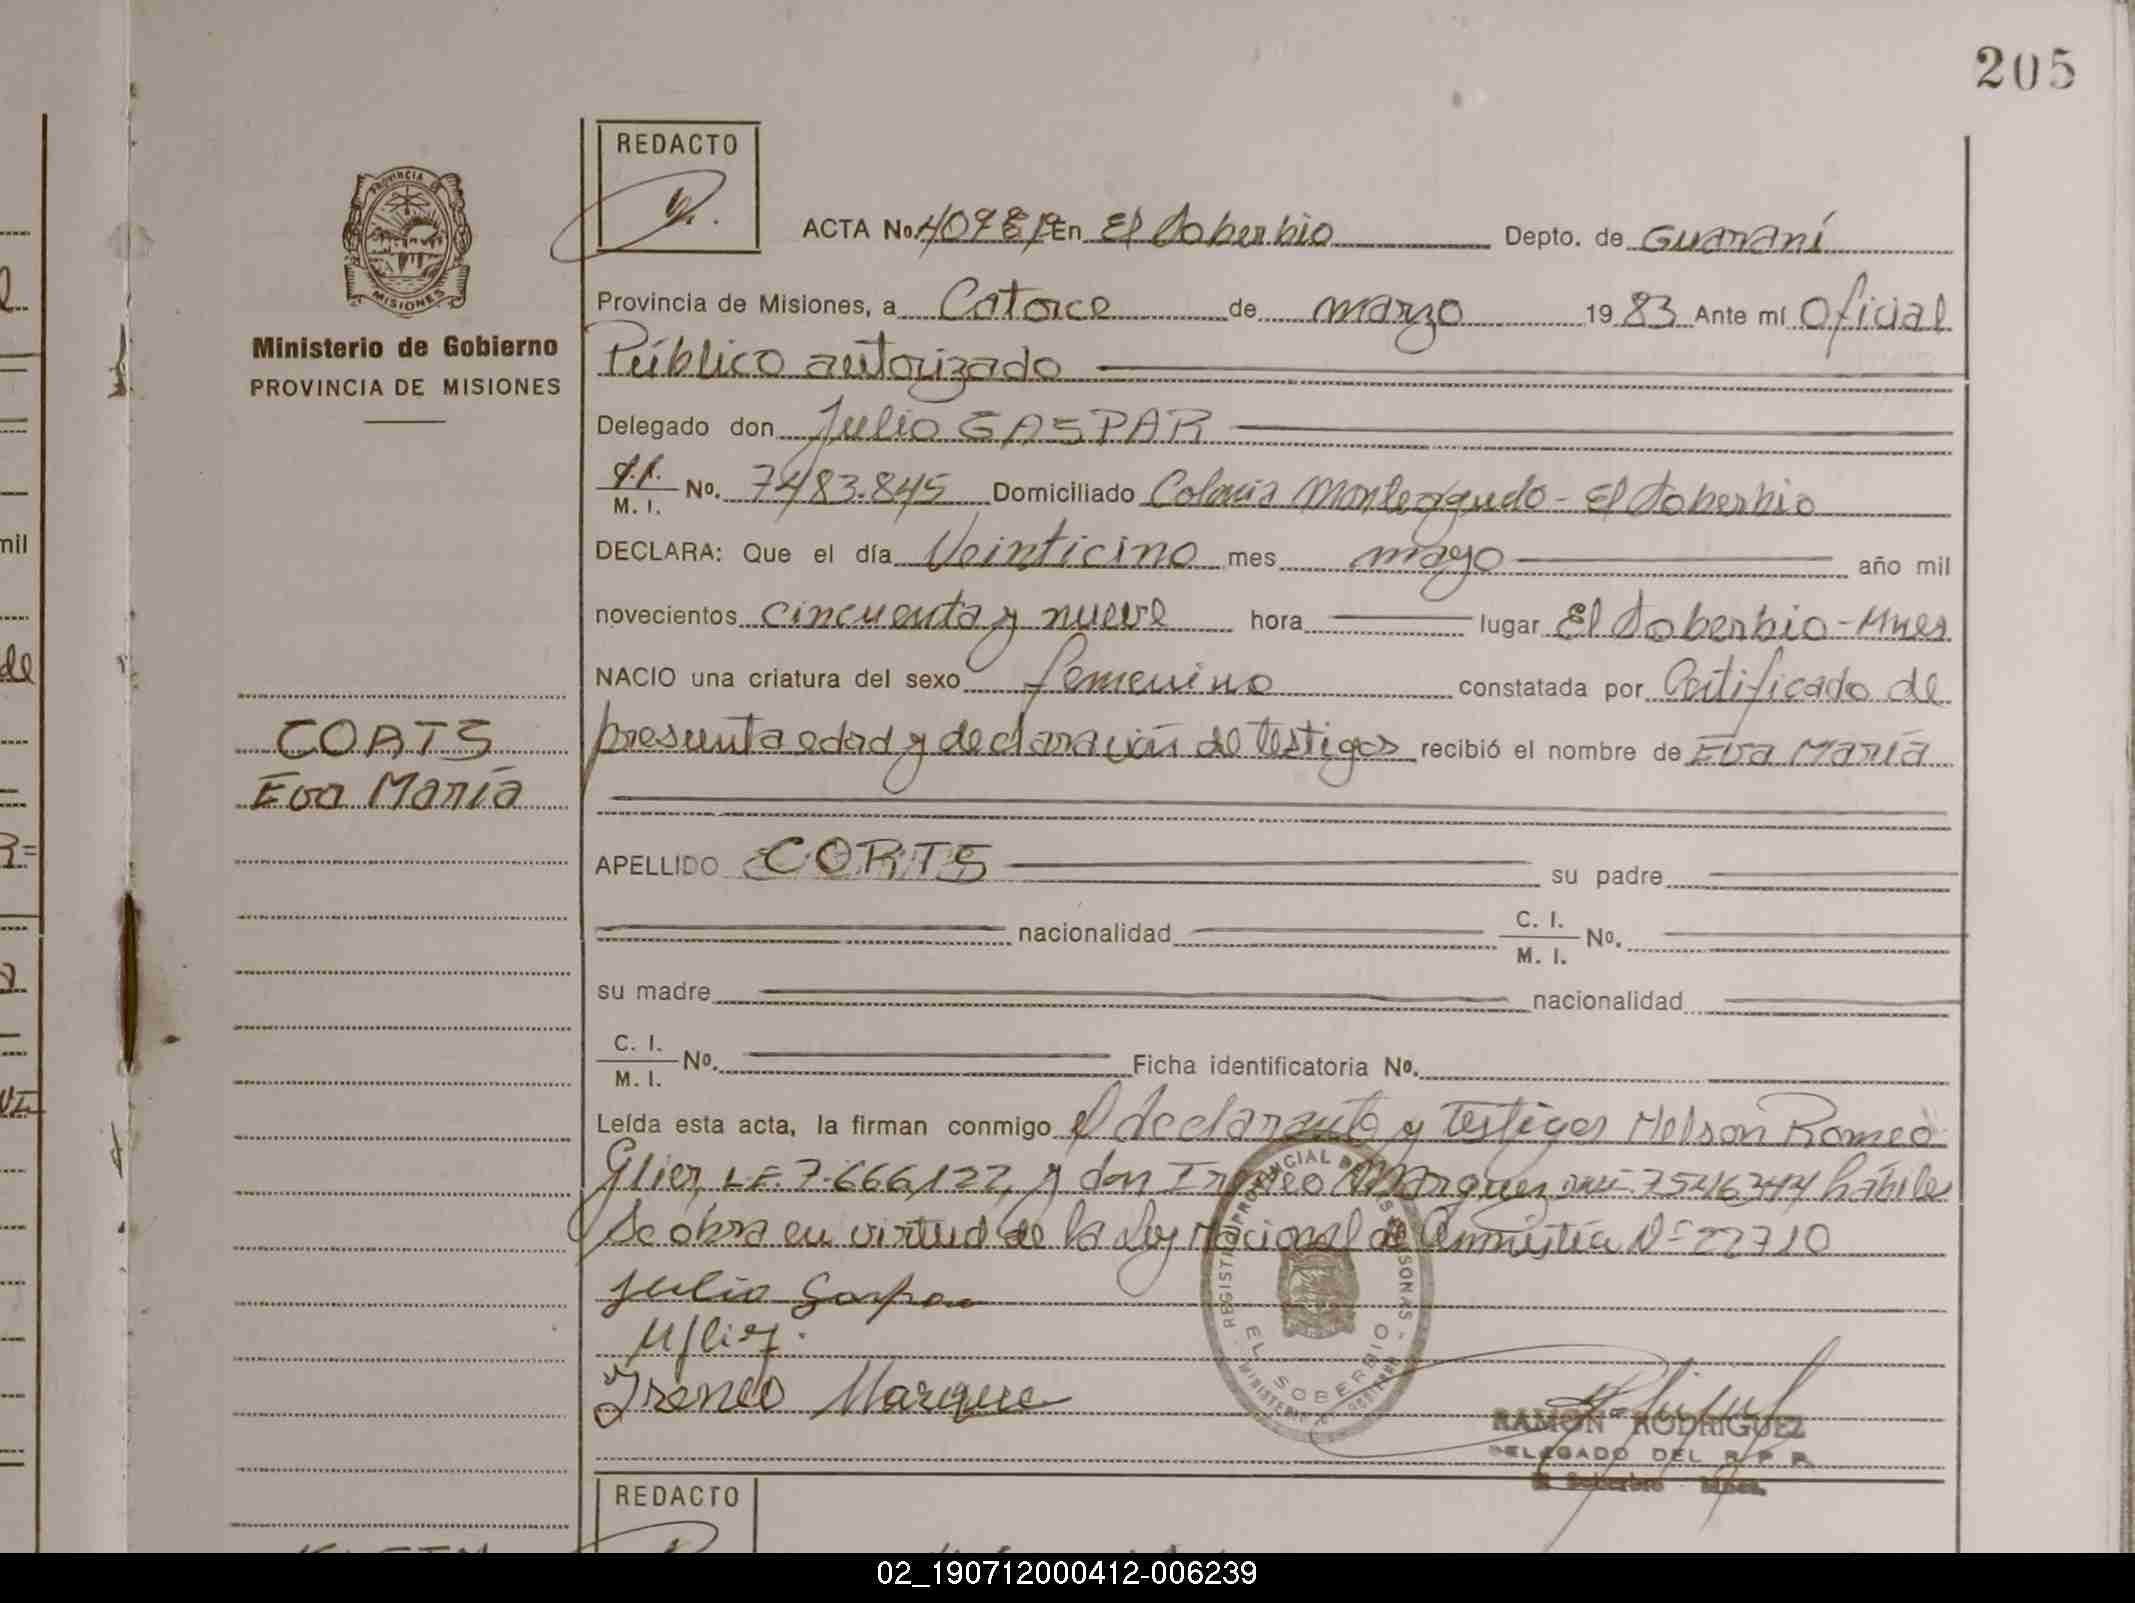 205
REDACTO
ACTA No. En El Soberbio Depto. de Guaraní
PROVINCIA
MISIONES
Provincia de Misiones, a Catorce de marzo 1983 Ante mí Oficial
Ministerio de Gobierno
Público autorizado
PROVINCIA DE MISIONES
Delegado don Julio GASPAR
M. I. No. 7483.845 Domiciliado Colonia Monteagudo - El Soberbio
DECLARA: Que el día Veinticino mes mayo año mil
novecientos cincuenta y nueve hora lugar El Soberbio - Mnes
NACIO una criatura del sexo femenino constatada por Certificado de
CORTS
presunta edad y declaración de testigos recibió el nombre de Eva María
Eva María
APELLIDO CORTS su padre
nacionalidad C. I. M. I. No.
su madre nacionalidad
C. I. M. I. No. Ficha identificatoria No.
Leída esta acta, la firman conmigo el declarante y testigos Nelson Romeo
Glier, L.E. 7.666,122, y don Ireneo Marquez 7546344 hábiles
Se obra en virtud de la Ley Nacional de Amnistía Nº 22710
Julio Gaspar
Ireneo Marque
REGISTRO PROVINCIAL DE LAS PERSONAS
EL SOBERBIO
RAMON RODRIGUEZ
DELEGADO DEL R. P. P.
El Soberbio Mnes.
REDACTO
02_190712000412-006239